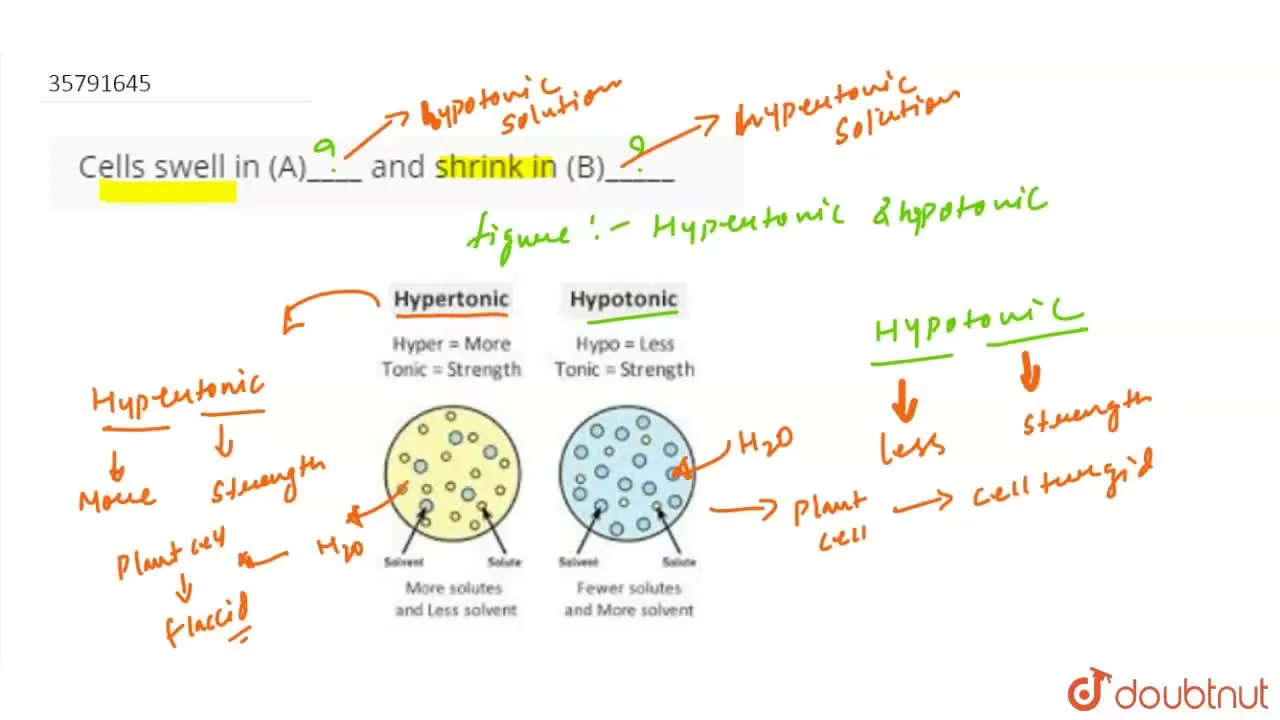 35791645
hypotonic
solution
hypertonic
solution
?
?
Cells swell in (A)____ and shrink in (B)_____
figure :- Hypertonic & hypotonic
Hypertonic
Hypotonic
Hyper = More
Tonic = Strength
Hypo = Less
Tonic = Strength
Hypotonic
less
strength
Hypertonic
More
strength
H2O
H2O
Plant cell
flaccid
Plant
cell
cell turgid
Solvent
Solute
Solvent
Solute
More solutes
and Less solvent
Fewer solutes
and More solvent
doubtnut